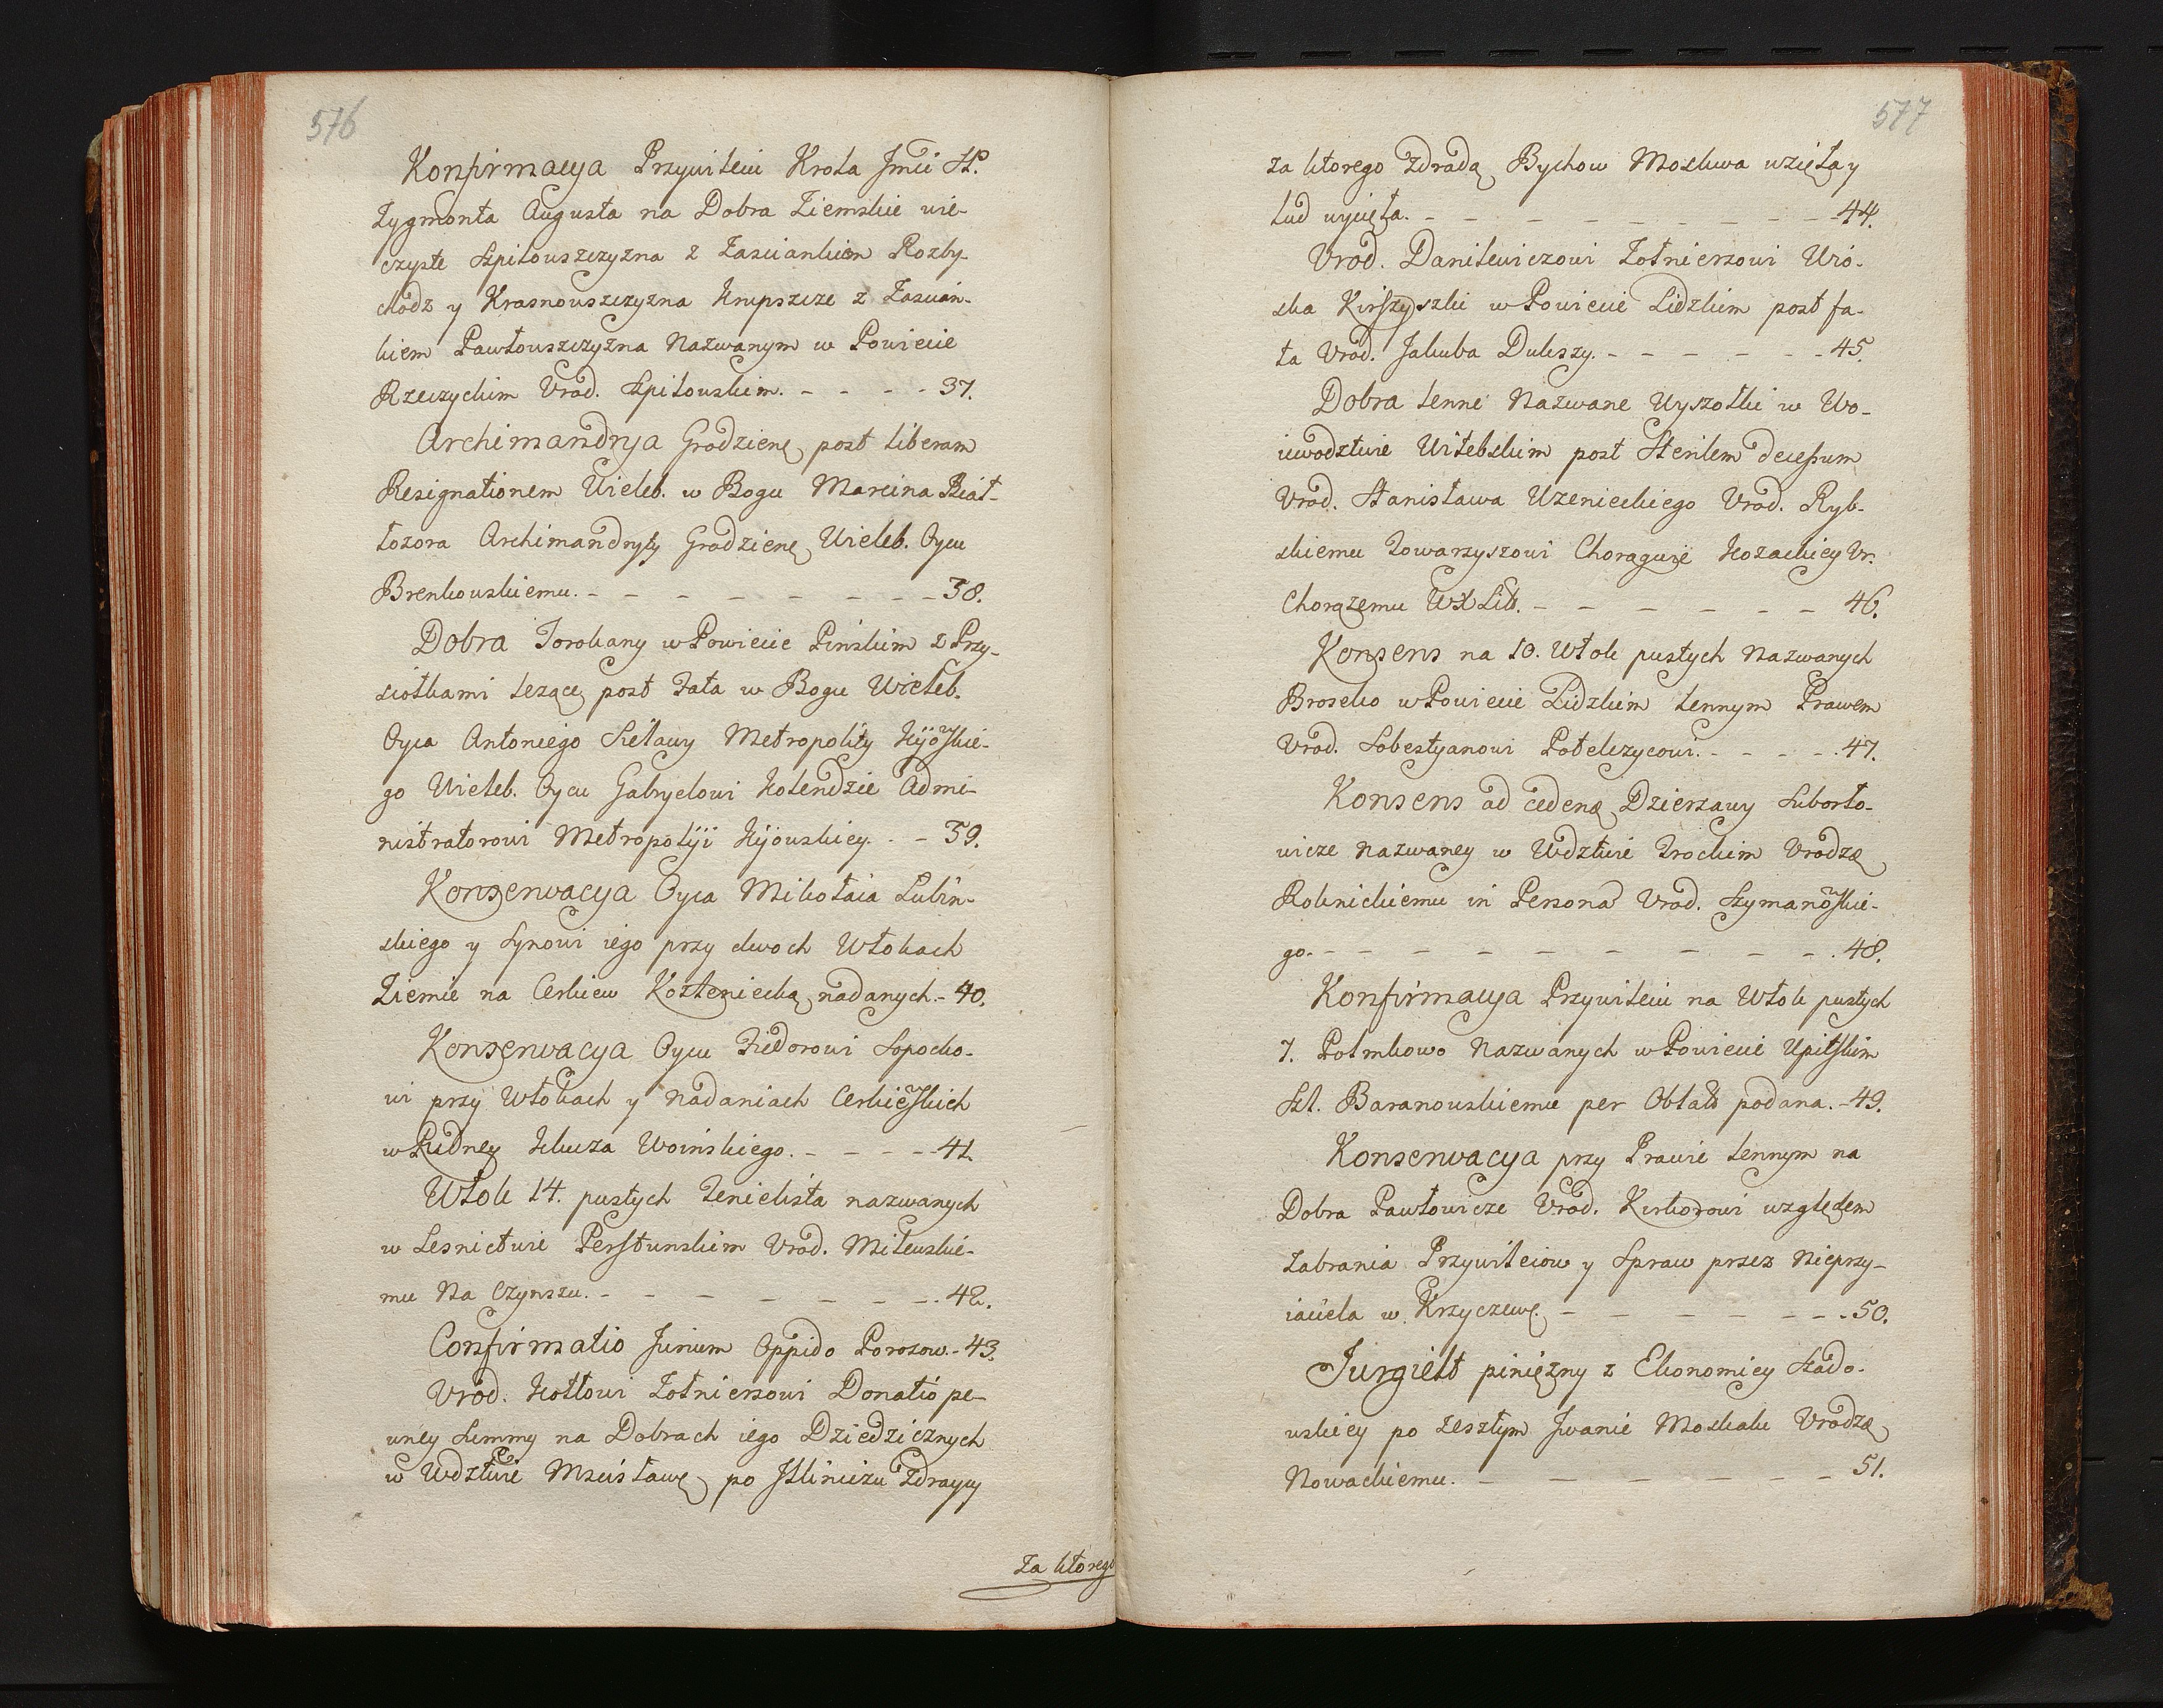 576
Konfirmacya Przywileiu Krola Jmći St.
Zygmonta Augusta na Dobra Ziemskie wie-
czyste Szpilowszczyzna z Zasciankiem Rozby-
chodz y Krasnowszczyzna Krupszcze z Zascian-
kiem Pawłowszczyzna Nazwanym w Powiecie
Rzeczyckim Urod. Szpilowskim. - - - - 37.
Archimandrya Grodzienę post liberam
Resignationem Wieleb. w Bogu Marcina Biał-
łozora Archimandryty Grodzienę Wieleb. Oycu
Brenkowskiemu. - - - - - - - - 38.
Dobra Torokany w Powiecie Pinskim z Przy-
siołkami lezącę post Fata w Bogu Wieleb.
Oyca Antoniego Sielawy Metropolity Kijowskie-
go Wieleb. Oycu Gabryelowi Kolendzie Admi-
nistratorowi Metropolyi Kijowskiey. - - 39.
Konserwacya Oyca Mikołaia Lubin-
skiego y Synowi iego przy dwoch Włokach
Ziemie na Cerkiew Kozteniecką nadanych. - 40.
Konserwacya Oycu Fiedorowi Sopocko-
wi przy Włokach y Nadaniach Cerkiewskich
w Rudney Klucza Woinskiego. - - - - - 41.
Włok 14. pustych Zenielista nazwanych
w Lesnictwie Perstunskim Urod. Milewskie-
mu Na Czynszu. - - - - - - - 42.
Confirmatio Jurium Oppido Porozow. - 43.
Urod. Kotłowi Zołnierzowi Donatio pe-
wney Summy na Dobrach iego Dziedzicznych
w Wdztwie Mscisławę po Jlliniczu Zdraycy
Za ktorego
577
za ktorego zdradą Bychow Moskwa wzięła y
lud wycięła. - - - - - - - - - 44.
Urod. Danilewiczowi Zołnierzowi Wio-
ska Kirszyszki w Powiecie Lidzkim post fa-
ta Urod. Jakuba Dukszy. - - - - - - 45.
Dobra lenne Nazwane Wyszotki w Wo-
iewodztwie Witebskim post Sterilem decessum
Urod. Stanisława Uzenieckiego Urod. Ryb-
skiemu Towarzyszowi Chorągwie Kozackiey Ur.
Chorązemu WXLitt. - - - - - - 46.
Konsens na 10. Włok pustych Nazwanych
Broseko w Powiecie Lidzkim lennym Prawem
Urod. Sobestyanowi Potelczycowi. - - - - - 47.
Konsens ad cedenę Dzierzawy Suborto-
wicze Nazwaney w Wdztwie Trockim Urodzę
Roknickiemu in Persona Urod. Szymanowskie-
go. - - - - - - - - - - 48.
Konfirmacya Przywileiu na Włok pustych
7. Potmkowo Nazwanych w Powiecie Upitskim
Szl. Baranowskiemu per Oblatō podana. - 49.
Konserwacya przy Prawie lennym na
Dobra Pawłowicze Urod. Kirkorowi względem
Zabrania Przywileiow y Spraw przez Nieprzy-
iaciela w Krzyczewę. - - - - - - - 50.
Jurgielt pinięzny z Ekonomiey Szado-
wskiey po zeszłym Jwanie Moskalu Urodzę
Nowackiemu. - - - - - - - 51.